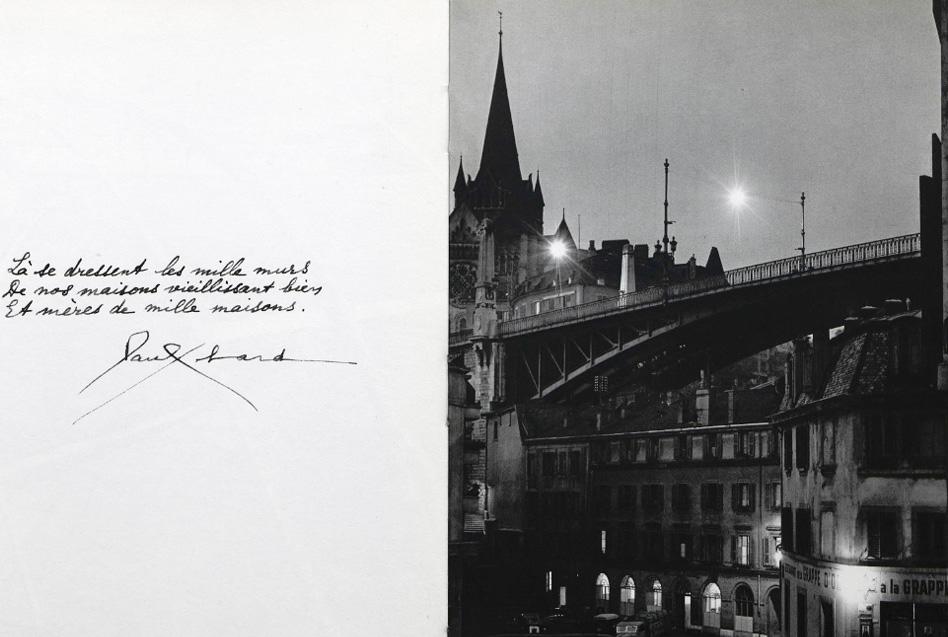 Là se dressent les mille murs
De nos maisons vieillissant bien
Et mères de mille maisons.
Paul Éluard
GRAPPE D'O
a la GRAPPE